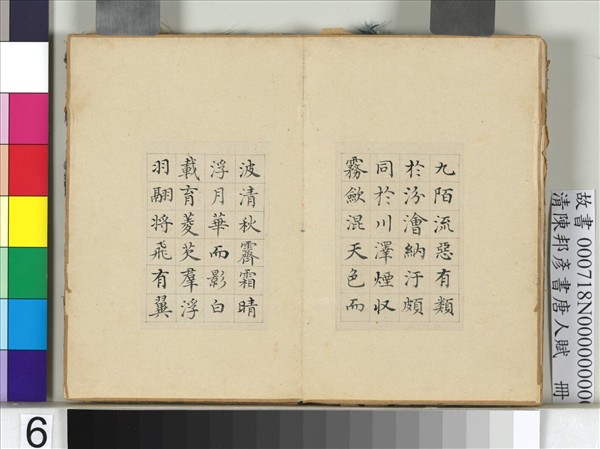 九陌流惡有類
於汾澮納汙頗
同於川澤煙収
霧歛混天色而
波清秋霽霜晴
浮月華而影白
載育菱芡羣浮
羽翮将飛有翼
故書 000718N000000000
清陳邦彥書唐人賦 冊
6